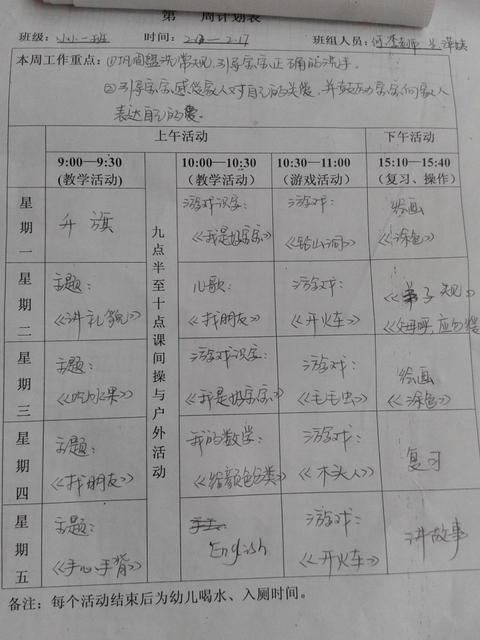 第 周计划表
班级：小小一班 时间：2.13—2.17 班组人员：何 李老师
本周工作重点：①巩固盥洗常规，引导宝宝正确的洗手。
②引导宝宝感受家人对自己的关爱，并鼓励宝宝向家人
表达自己的爱。
上午活动 下午活动
9:00—9:30 10:00—10:30 10:30—11:00 15:10—15:40
(教学活动) （教学活动） （游戏活动） （复习、操作）
九点半至十点课间操与户外活动
星期一 升旗 游戏识字：《我是好宝宝》 游戏：《钻山洞》 绘画《涂色》
星期二 主题：《讲礼貌》 儿歌：《找朋友》 游戏：《开火车》 《弟子规》《父母呼，应勿缓
星期三 主题：《吃水果》 游戏识字：《我是好宝宝》 游戏：《毛毛虫》 绘画《涂色》
星期四 主题：《找朋友》 我的数学：《给颜色分类》 游戏：《木头人》 复习
星期五 主题：《手心手背》 English 游戏：《开火车》 讲故事
备注：每个活动结束后为幼儿喝水、入厕时间。